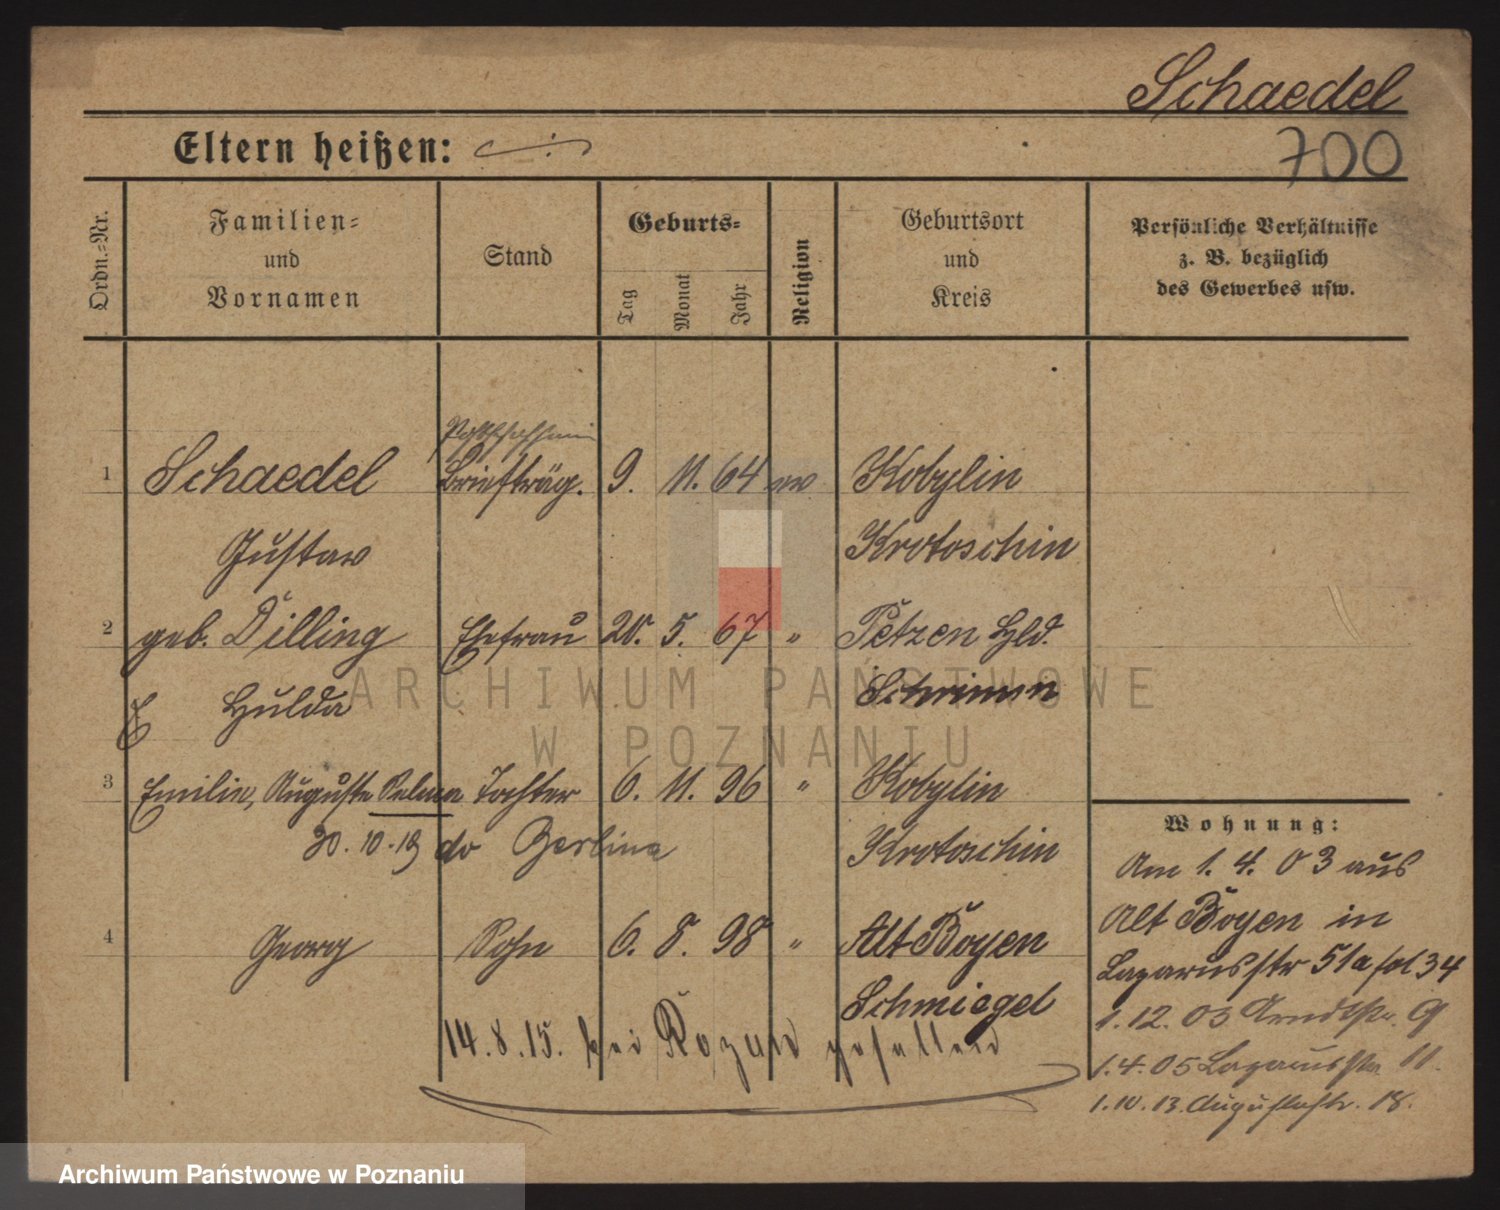 Schaedel
700
Eltern heißen:
Ordn.-Nr.
Familien-
und
Vornamen
Stand
Geburts-
Tag
Monat
Jahr
Religion
Geburtsort
und
Kreis
Persönliche Verhältnisse
z. B. bezüglich
des Gewerbes usw.
1 Schaedel Briefträg. 9. 11. 64 ev Kobylin
Gustav Krotoschin
2 geb. Dilling Ehefrau 20. 5. 67 " Petzen Hld.
Hulda Schrimm
3 Emilie, Auguste Selma Tochter 6. 11. 96 " Kobylin
do Berlina Krotoschin
4 Georg Sohn 6. 8. 98 " Alt Boyen
Schmiegel
14. 8. 15. bei Rozan gefallen
Wohnung:
Am 1. 4. 03 aus
Alt Boyen in
Lazarusstr 51a fol 34
1. 12. 03 Arndtstr. 9
1. 4. 05 Lazarusstr. 11.
1. 10. 13. Augustastr. 18.
ARCHIWUM PAŃSTWOWE
W POZNANIU
Archiwum Państwowe w Poznaniu